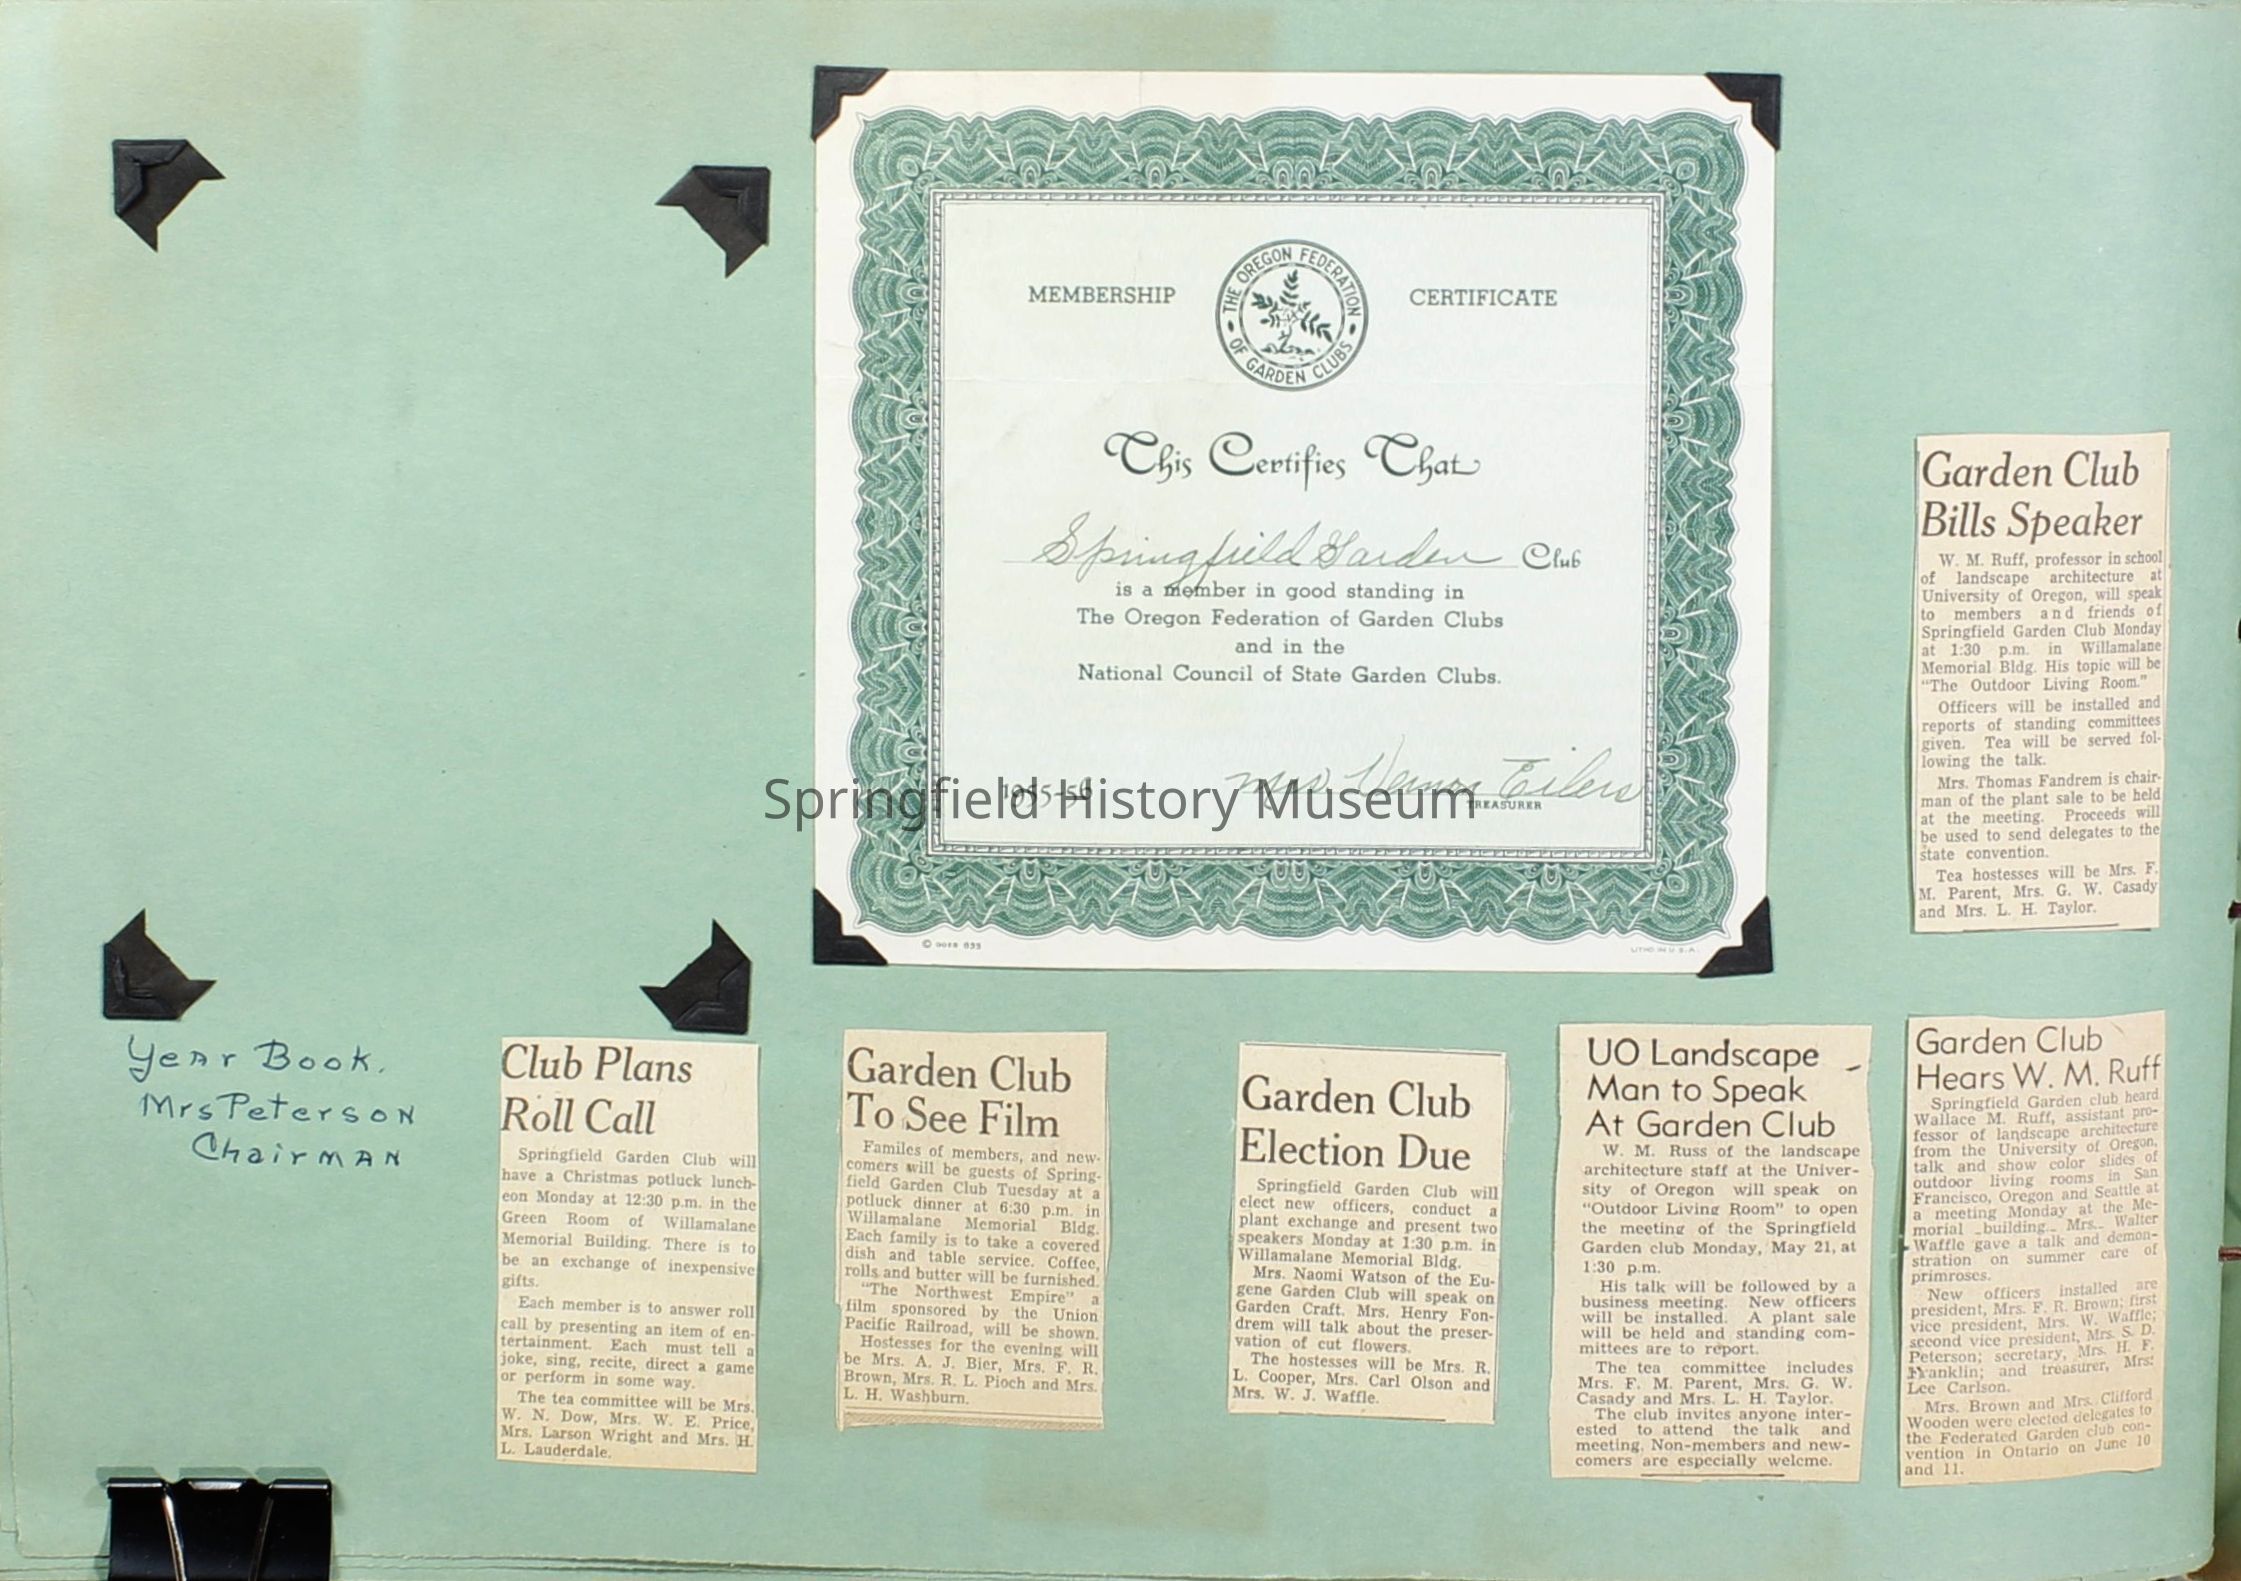 MEMBERSHIP CERTIFICATE
THE OREGON FEDERATION OF GARDEN CLUBS
This Certifies That
Springfield Garden Club
is a member in good standing in
The Oregon Federation of Garden Clubs
and in the
National Council of State Garden Clubs.
1955-56 Mrs Vernor Eilers
TREASURER
Springfield History Museum
© GOES 655
LITHO IN U.S.A.
Garden Club
Bills Speaker
W. M. Ruff, professor in school
of landscape architecture at
University of Oregon, will speak
to members and friends of
Springfield Garden Club Monday
at 1:30 p.m. in Willamalane
Memorial Bldg. His topic will be
"The Outdoor Living Room."
Officers will be installed and
reports of standing committees
given. Tea will be served fol-
lowing the talk.
Mrs. Thomas Fandrem is chair-
man of the plant sale to be held
at the meeting. Proceeds will
be used to send delegates to the
state convention.
Tea hostesses will be Mrs. F.
M. Parent, Mrs. G. W. Casady
and Mrs. L. H. Taylor.
Year Book.
Mrs Peterson
Chairman
Club Plans
Roll Call
Springfield Garden Club will
have a Christmas potluck lunch-
eon Monday at 12:30 p.m. in the
Green Room of Willamalane
Memorial Building. There is to
be an exchange of inexpensive
gifts.
Each member is to answer roll
call by presenting an item of en-
tertainment. Each must tell a
joke, sing, recite, direct a game
or perform in some way.
The tea committee will be Mrs.
W. N. Dow, Mrs. W. E. Price,
Mrs. Larson Wright and Mrs. H.
L. Lauderdale.
Garden Club
To See Film
Familes of members, and new-
comers will be guests of Spring-
field Garden Club Tuesday at a
potluck dinner at 6:30 p.m. in
Willamalane Memorial Bldg.
Each family is to take a covered
dish and table service. Coffee,
rolls and butter will be furnished.
"The Northwest Empire" a
film sponsored by the Union
Pacific Railroad, will be shown.
Hostesses for the evening will
be Mrs. A. J. Bier, Mrs. F. R.
Brown, Mrs. R. L. Pioch and Mrs.
L. H. Washburn.
Garden Club
Election Due
Springfield Garden Club will
elect new officers, conduct a
plant exchange and present two
speakers Monday at 1:30 p.m. in
Willamalane Memorial Bldg.
Mrs. Naomi Watson of the Eu-
gene Garden Club will speak on
Garden Craft. Mrs. Henry Fon-
drem will talk about the preser-
vation of cut flowers.
The hostesses will be Mrs. R.
L. Cooper, Mrs. Carl Olson and
Mrs. W. J. Waffle.
UO Landscape
Man to Speak
At Garden Club
W. M. Russ of the landscape
architecture staff at the Univer-
sity of Oregon will speak on
"Outdoor Living Room" to open
the meeting of the Springfield
Garden club Monday, May 21, at
1:30 p.m.
His talk will be followed by a
business meeting. New officers
will be installed. A plant sale
will be held and standing com-
mittees are to report.
The tea committee includes
Mrs. F. M. Parent, Mrs. G. W.
Casady and Mrs. L. H. Taylor.
The club invites anyone inter-
ested to attend the talk and
meeting. Non-members and new-
comers are especially welcme.
Garden Club
Hears W. M. Ruff
Springfield Garden club heard
Wallace M. Ruff, assistant pro-
fessor of landscape architecture
from the University of Oregon,
talk and show color slides of
outdoor living rooms in San
Francisco, Oregon and Seattle at
a meeting Monday at the Me-
morial building. Mrs. Walter
Waffle gave a talk and demon-
stration on summer care of
primroses.
New officers installed are
president, Mrs. F. R. Brown; first
vice president, Mrs. W. Waffle;
second vice president, Mrs. S. D.
Peterson; secretary, Mrs. H. F.
Franklin; and treasurer, Mrs.
Lee Carlson.
Mrs. Brown and Mrs. Clifford
Wooden were elected delegates to
the Federated Garden club con-
vention in Ontario on June 10
and 11.